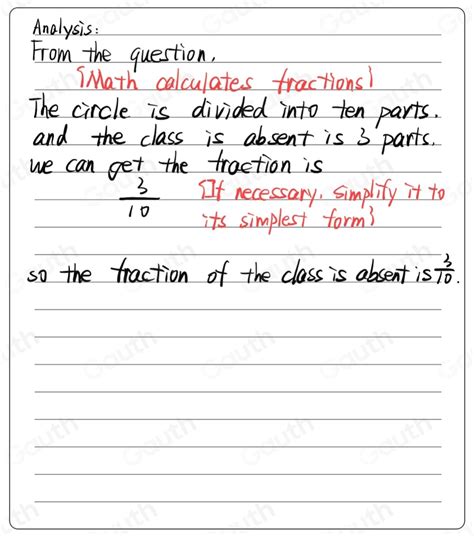 Analysis:
From the question,
{Math calculates fractions}
The circle is divided into ten parts.
and the class is absent is 3 parts.
we can get the fraction is
3/10 {If necessary, simplify it to
its simplest form}
so the fraction of the class is absent is 3/10.